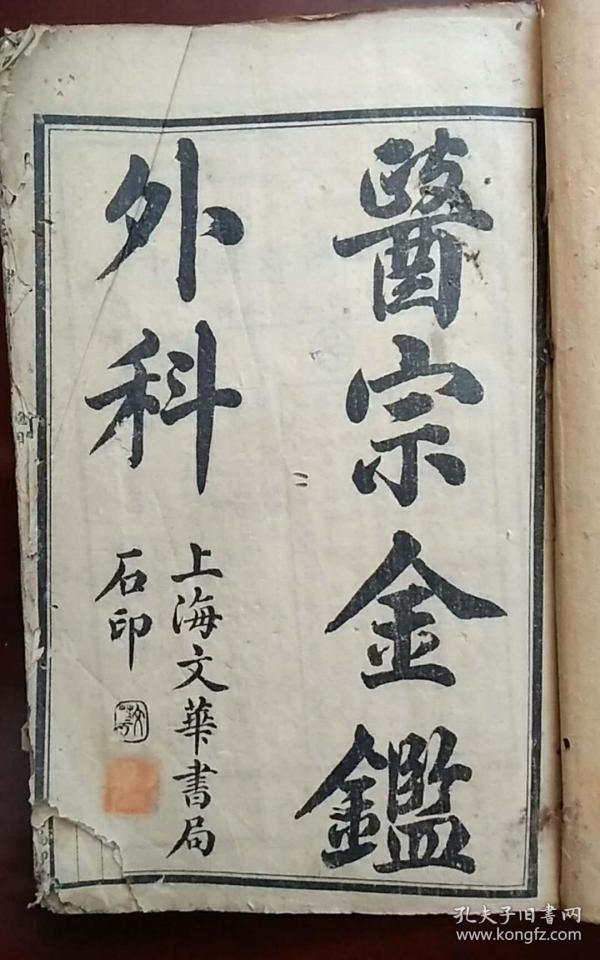 醫宗金鑑
外科
上海文華書局
石印
孔夫子旧书网
www.kongfz.com